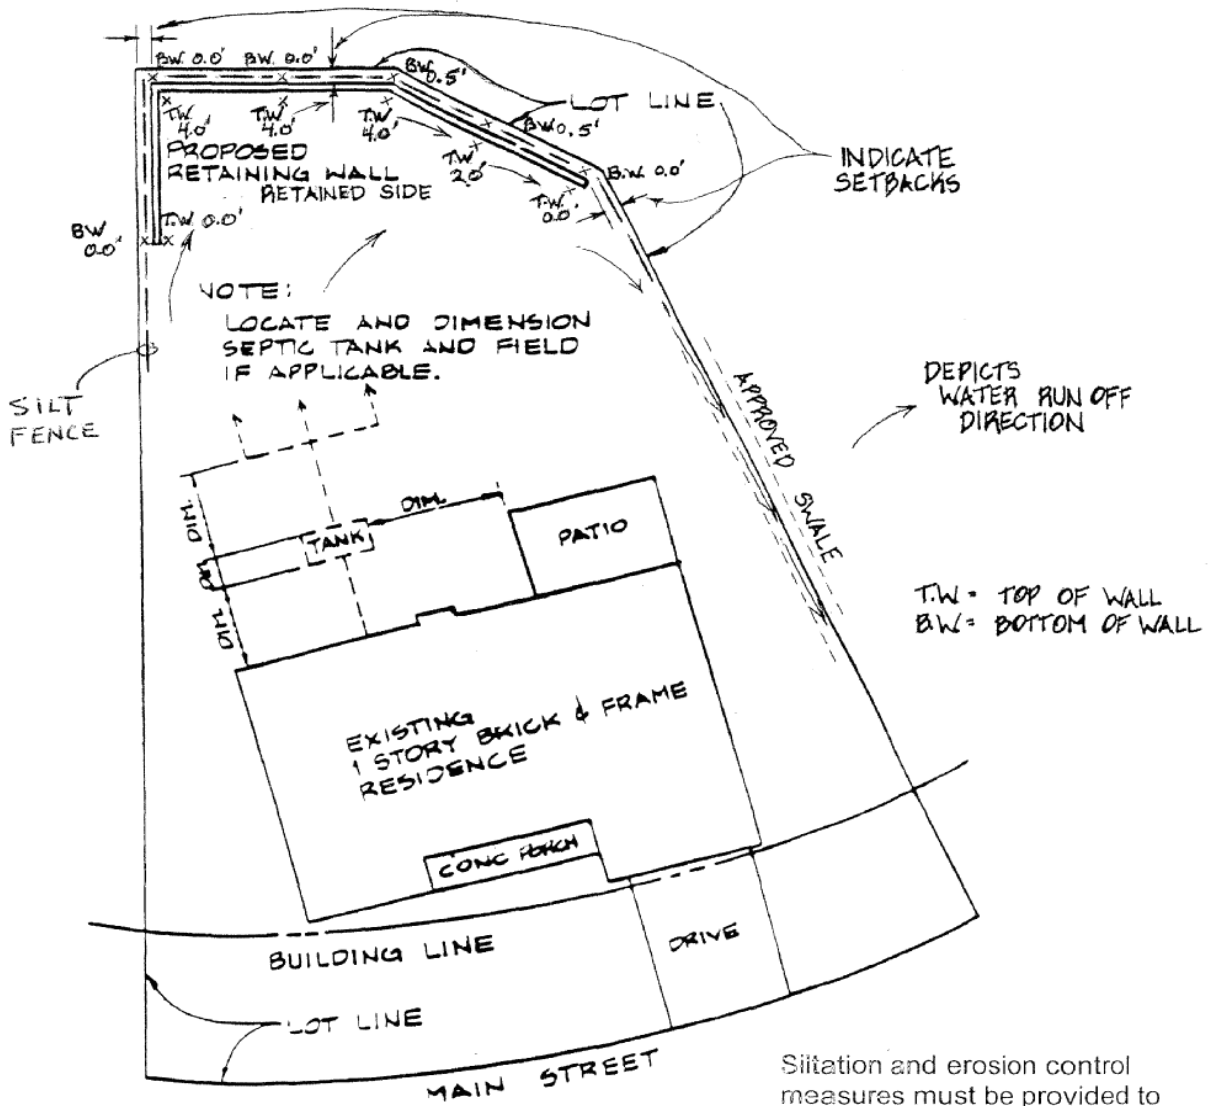 B.W. 0.0' B.W. 0.0'
B.W. 0.5'
LOT LINE
T.W. 4.0' T.W. 4.0' T.W. 4.0'
B.W. 0.5'
PROPOSED
RETAINING WALL
RETAINED SIDE
T.W. 2.0'
B.W. 0.0'
INDICATE
SETBACKS
T.W. 0.0'
B.W. 0.0'
T.W. 0.0'
NOTE:
LOCATE AND DIMENSION
SEPTIC TANK AND FIELD
IF APPLICABLE.
SILT
FENCE
DEPICTS
WATER RUN OFF
DIRECTION
APPROVED SWALE
DIM.
DIM.
TANK
PATIO
DIM.
DIM.
T.W = TOP OF WALL
B.W = BOTTOM OF WALL
EXISTING
1 STORY BRICK & FRAME
RESIDENCE
CONC PORCH
DRIVE
BUILDING LINE
LOT LINE
MAIN STREET
Siltation and erosion control
measures must be provided to